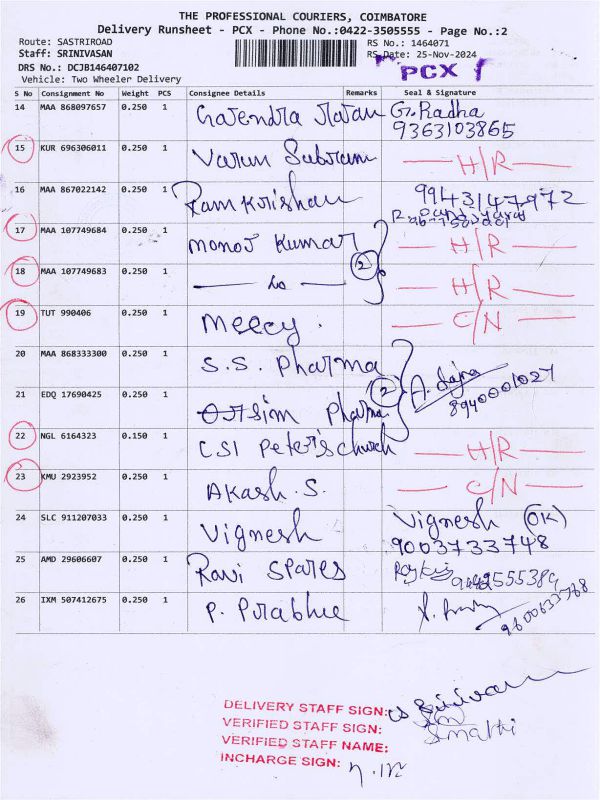 THE PROFESSIONAL COURIERS, COIMBATORE
Delivery Runsheet - PCX - Phone No.:0422-3505555 - Page No.:2
Route: SASTRIROAD
RS No.: 1464071
Staff: SRINIVASAN
RS Date: 25-Nov-2024
DRS No.: DCJB146407102
PCX
Vehicle: Two Wheeler Delivery
S No Consignment No Weight PCS Consignee Details Remarks Seal & Signature
14 MAA 868097657 0.250 1 Gajendra G. Radha
9363103865
15 KUR 696306011 0.250 1 Varun Subram H/R
16 MAA 867022142 0.250 1 Ramkrishan 9943147972
17 MAA 107749684 0.250 1 Manoj Kumar H/R
18 MAA 107749683 0.250 1 — do — (2) H/R
19 TUT 990406 0.250 1 Mercy. C/N
20 MAA 868333300 0.250 1 S.S. Pharma
21 EDQ 17690425 0.250 1 Pharma (2) 8940001027
22 NGL 6164323 0.150 1 CSI Peter's church H/R
23 KMU 2923952 0.250 1 Akash. S. C/N
24 SLC 911207033 0.250 1 Vignesh Vignesh (OK)
9003733748
25 AMD 29606607 0.250 1 Ravi Spares
26 IXM 507412675 0.250 1 P. Prabhu 9600633768
DELIVERY STAFF SIGN:
VERIFIED STAFF SIGN:
VERIFIED STAFF NAME: Smathi
INCHARGE SIGN: